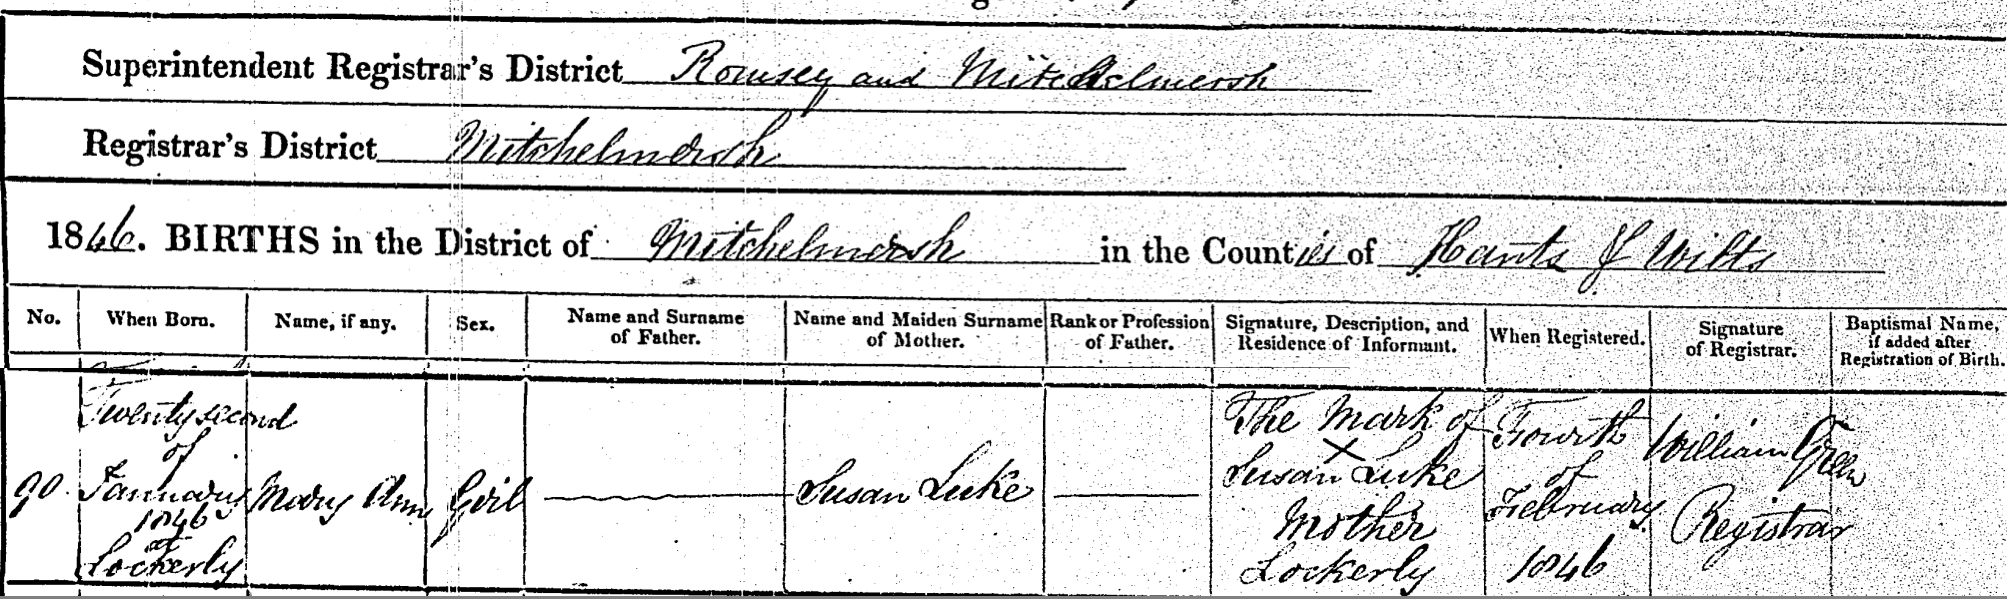 Superintendent Registrar's District Romsey and Mitchelmersh
Registrar's District Mitchelmersh
1846. BIRTHS in the District of Mitchelmersh in the Counties of Hants & Wilts
No. When Born. Name, if any. Sex. Name and Surname of Father. Name and Maiden Surname of Mother. Rank or Profession of Father. Signature, Description, and Residence of Informant. When Registered. Signature of Registrar. Baptismal Name, if added after Registration of Birth.
90
Twenty second
of
January
1846
at
Lockerly
Mary Ann
Girl
Susan Luke
The Mark of
X
Susan Luke
Mother
Lockerly
Fourth
of
February
1846
William
Registrar